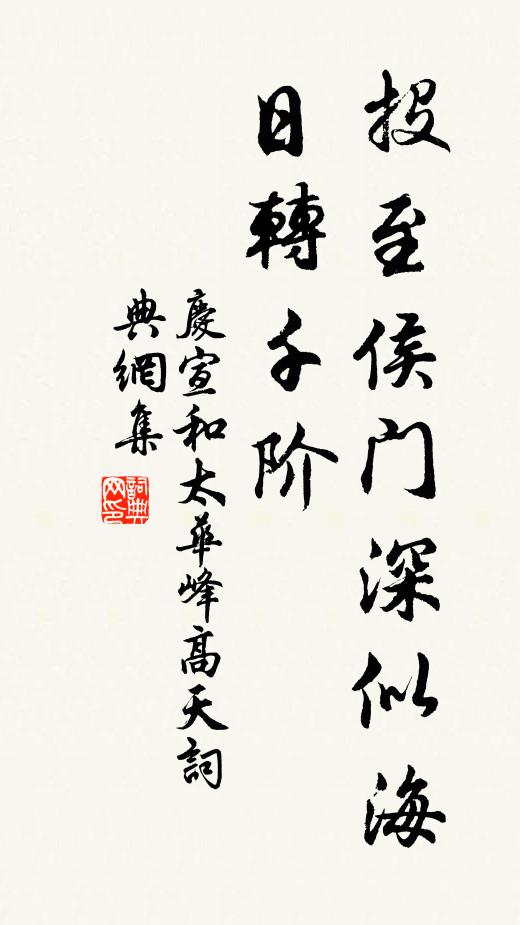 投至侯门深似海
日轉千阶
慶宣和太華峰高天詞
典網集
詞典
网印